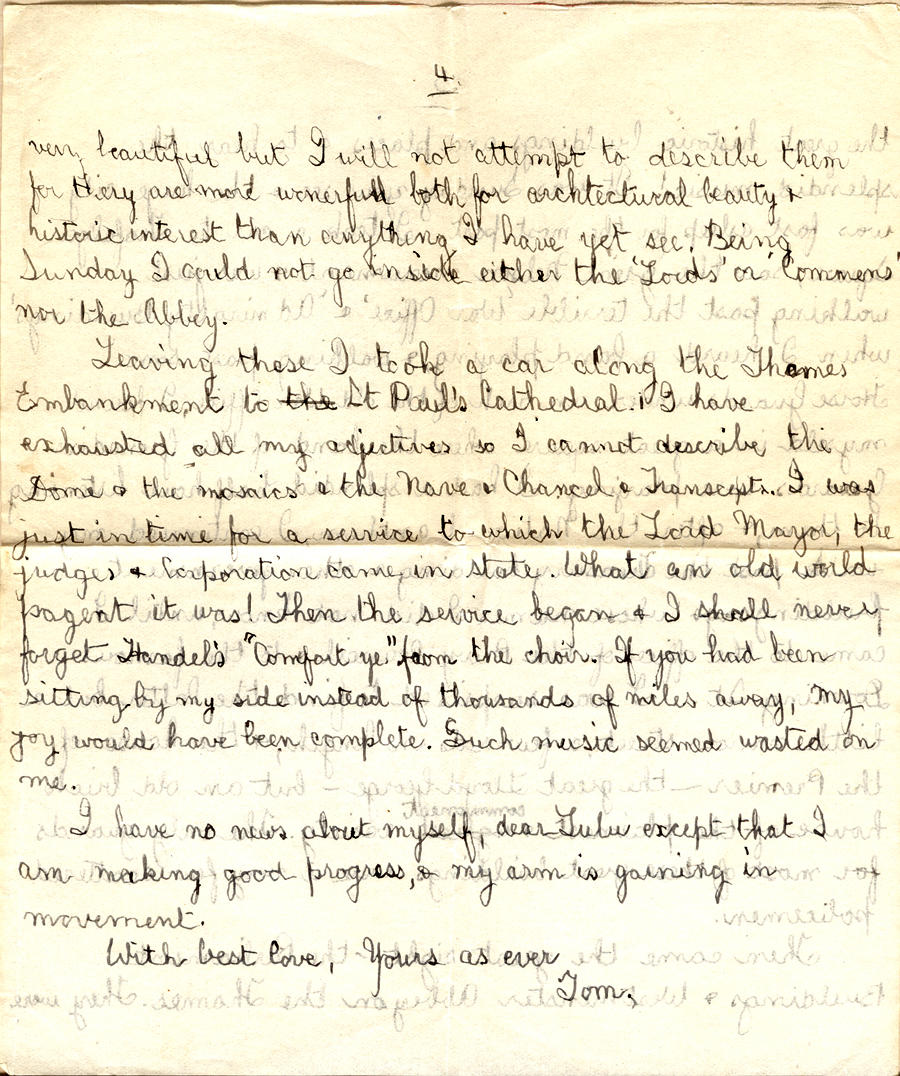 4.
very beautiful but I will not attempt to describe them
for they are more wonerfull both for archtectural beauty &
historic interest than anything I have yet see. Being
Sunday I could not go inside either the 'Lords' or 'Commons'
nor the Abbey.
Leaving these I took a car along the Thames
Embankment to the St Paul's Cathedral. I have
exhausted all my adjectives so I cannot describe the
Dome & the mosaics & the Nave & Chancel & Transcepts. I was
just in time for a service to which the Lord Mayor, the
judges & Corporation came in state. What an old world
pagent it was! Then the service began & I shall never
forget Handel's "Comfort ye" from the choir. If you had been
sitting by my side instead of thousands of miles away, my
joy would have been complete. Such music seemed wasted on
me.
I have no news about myself, dear Lulu except that I
am making good progress, & my arm is gaining in
movement.
With best love, Yours as ever
Tom.